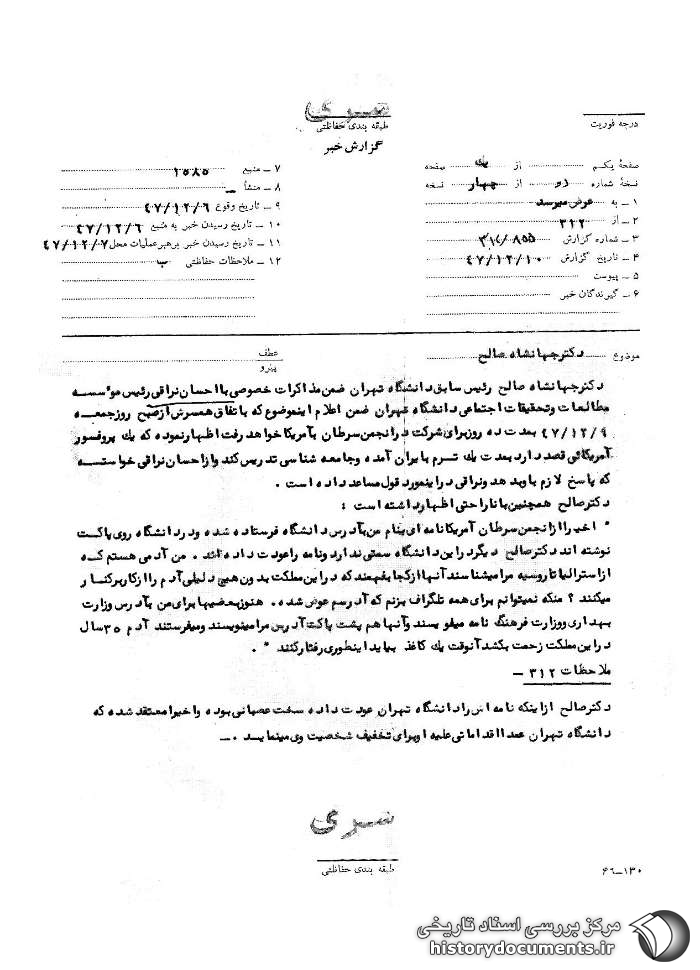 سری
طبقه بندی حفاظتی
گزارش خبر
درجه فوریت
صفحهٔ یکم از یک صفحه
نسخهٔ شماره دو از چهار نسخه
۱ ـ به عرض میرسد
۲ ـ از ۳۱۲
۳ ـ شماره گزارش ۳۱۲/۸۵۵
۴ ـ تاریخ گزارش ۴۷/۱۲/۱۰
۵ ـ پیوست
۶ ـ گیرندگان خبر
۷ ـ منبع ۱۵۸۵
۸ ـ منشأ ـ
۹ ـ تاریخ وقوع ۴۷/۱۲/۶
۱۰ ـ تاریخ رسیدن خبر به منبع ۴۷/۱۲/۶
۱۱ ـ تاریخ رسیدن خبر برهبر عملیات محل ۴۷/۱۲/۷
۱۲ ـ ملاحظات حفاظتی ب
موضوع دکتر جهانشاه صالح
عطف
پیرو
دکتر جهانشاه صالح رئیس سابق دانشگاه تهران ضمن مذاکرات خصوصی با احسان نراقی رئیس مؤسسه
مطالعات و تحقیقات اجتماعی دانشگاه تهران ضمن اعلام اینموضوع که باتفاق همسرش از صبح روز جمعه
۴۷/۱۲/۹ بمدت ده روز برای شرکت در انجمن سرطان بآمریکا خواهد رفت اظهار نموده که یک پروفسور
آمریکائی قصد دارد بمدت یک ترم بایران آمده و جامعه شناسی تدریس کند و از احسان نراقی خواسته
که پاسخ لازم باو بدهد و نراقی در اینمورد قول مساعد داده است .
دکتر صالح همچنین با ناراحتی اظهار داشته است :
" اخیرا از انجمن سرطان آمریکا نامه ای بنام من بآدرس دانشگاه فرستاده شده و در دانشگاه روی پاکت
نوشته اند دکتر صالح دیگر در این دانشگاه سمتی ندارد و نامه را عودت داده اند . من آدمی هستم که
از استرالیا تا روسیه مرا میشناسند آنها از کجا بفهمند که در این مملکت بدون هیچ دلیلی آدم را از کار برکنار
میکنند ؟ منکه نمیتوانم برای همه تلگراف بزنم که آدرسم عوض شده . هنوز بعضیها برای من بآدرس وزارت
بهداری و وزارت فرهنگ نامه مینویسند و آنها هم پشت پاکت آدرس مرا مینویسند و میفرستند آدم ۳۵ سال
در این مملکت زحمت بکشد آنوقت یک کاغذ بیاید اینطوری رفتار کنند " .
ملاحظات ۳۱۲ ـ
دکتر صالح از اینکه نامه اش را دانشگاه تهران عودت داده سخت عصبانی بوده و اخیرا معتقد شده که
دانشگاه تهران عمدا اقداماتی علیه او برای تخفیف شخصیت وی مینماید . ـ
سری
طبقه بندی حفاظتی
۶۶ـ۱۳۰
مرکز بررسی اسناد تاریخی
historydocuments.ir